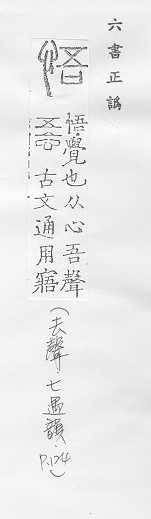 六書正譌
悟
悟覺也从心吾聲
古文通用寤
(去聲.七遇韻.P.124)